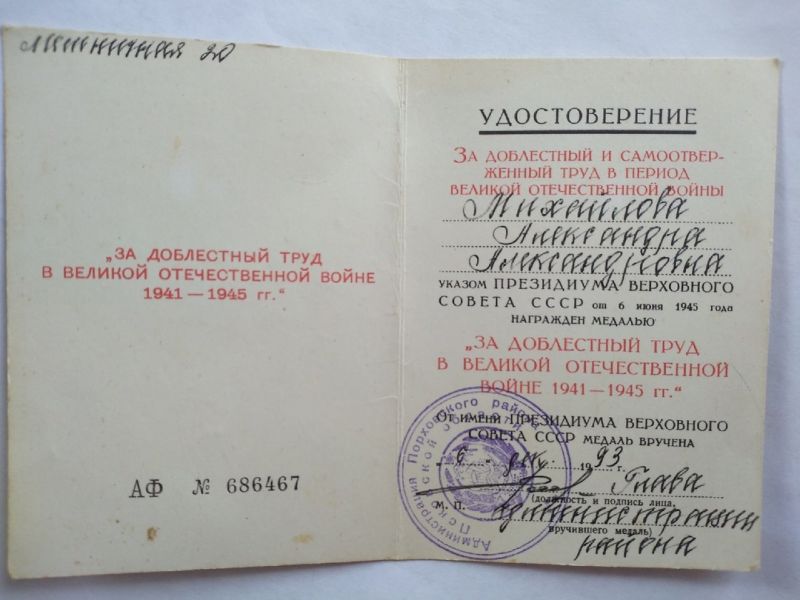 20
„ЗА ДОБЛЕСТНЫЙ ТРУД
В ВЕЛИКОЙ ОТЕЧЕСТВЕННОЙ ВОЙНЕ
1941 — 1945 гг.“
АФ № 686467
УДОСТОВЕРЕНИЕ
ЗА ДОБЛЕСТНЫЙ И САМООТВЕР-
ЖЕННЫЙ ТРУД В ПЕРИОД
ВЕЛИКОЙ ОТЕЧЕСТВЕННОЙ ВОЙНЫ
Михайлова
Александра
Александровна
УКАЗОМ ПРЕЗИДИУМА ВЕРХОВНОГО
СОВЕТА СССР от 6 июня 1945 года
НАГРАЖДЕН МЕДАЛЬЮ
„ЗА ДОБЛЕСТНЫЙ ТРУД
В ВЕЛИКОЙ ОТЕЧЕСТВЕННОЙ
ВОЙНЕ 1941 — 1945 гг.“
От имени ПРЕЗИДИУМА ВЕРХОВНОГО
СОВЕТА СССР МЕДАЛЬ ВРУЧЕНА
„6“ дек 1993 г.
Глава
М. П. (должность и подпись лица,
администрации
вручившего медаль)
района
Администрация Порховского района
Псковской области